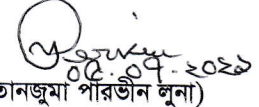 ০৫.০৭.২০২১
তানজুমা পারভীন লুনা)